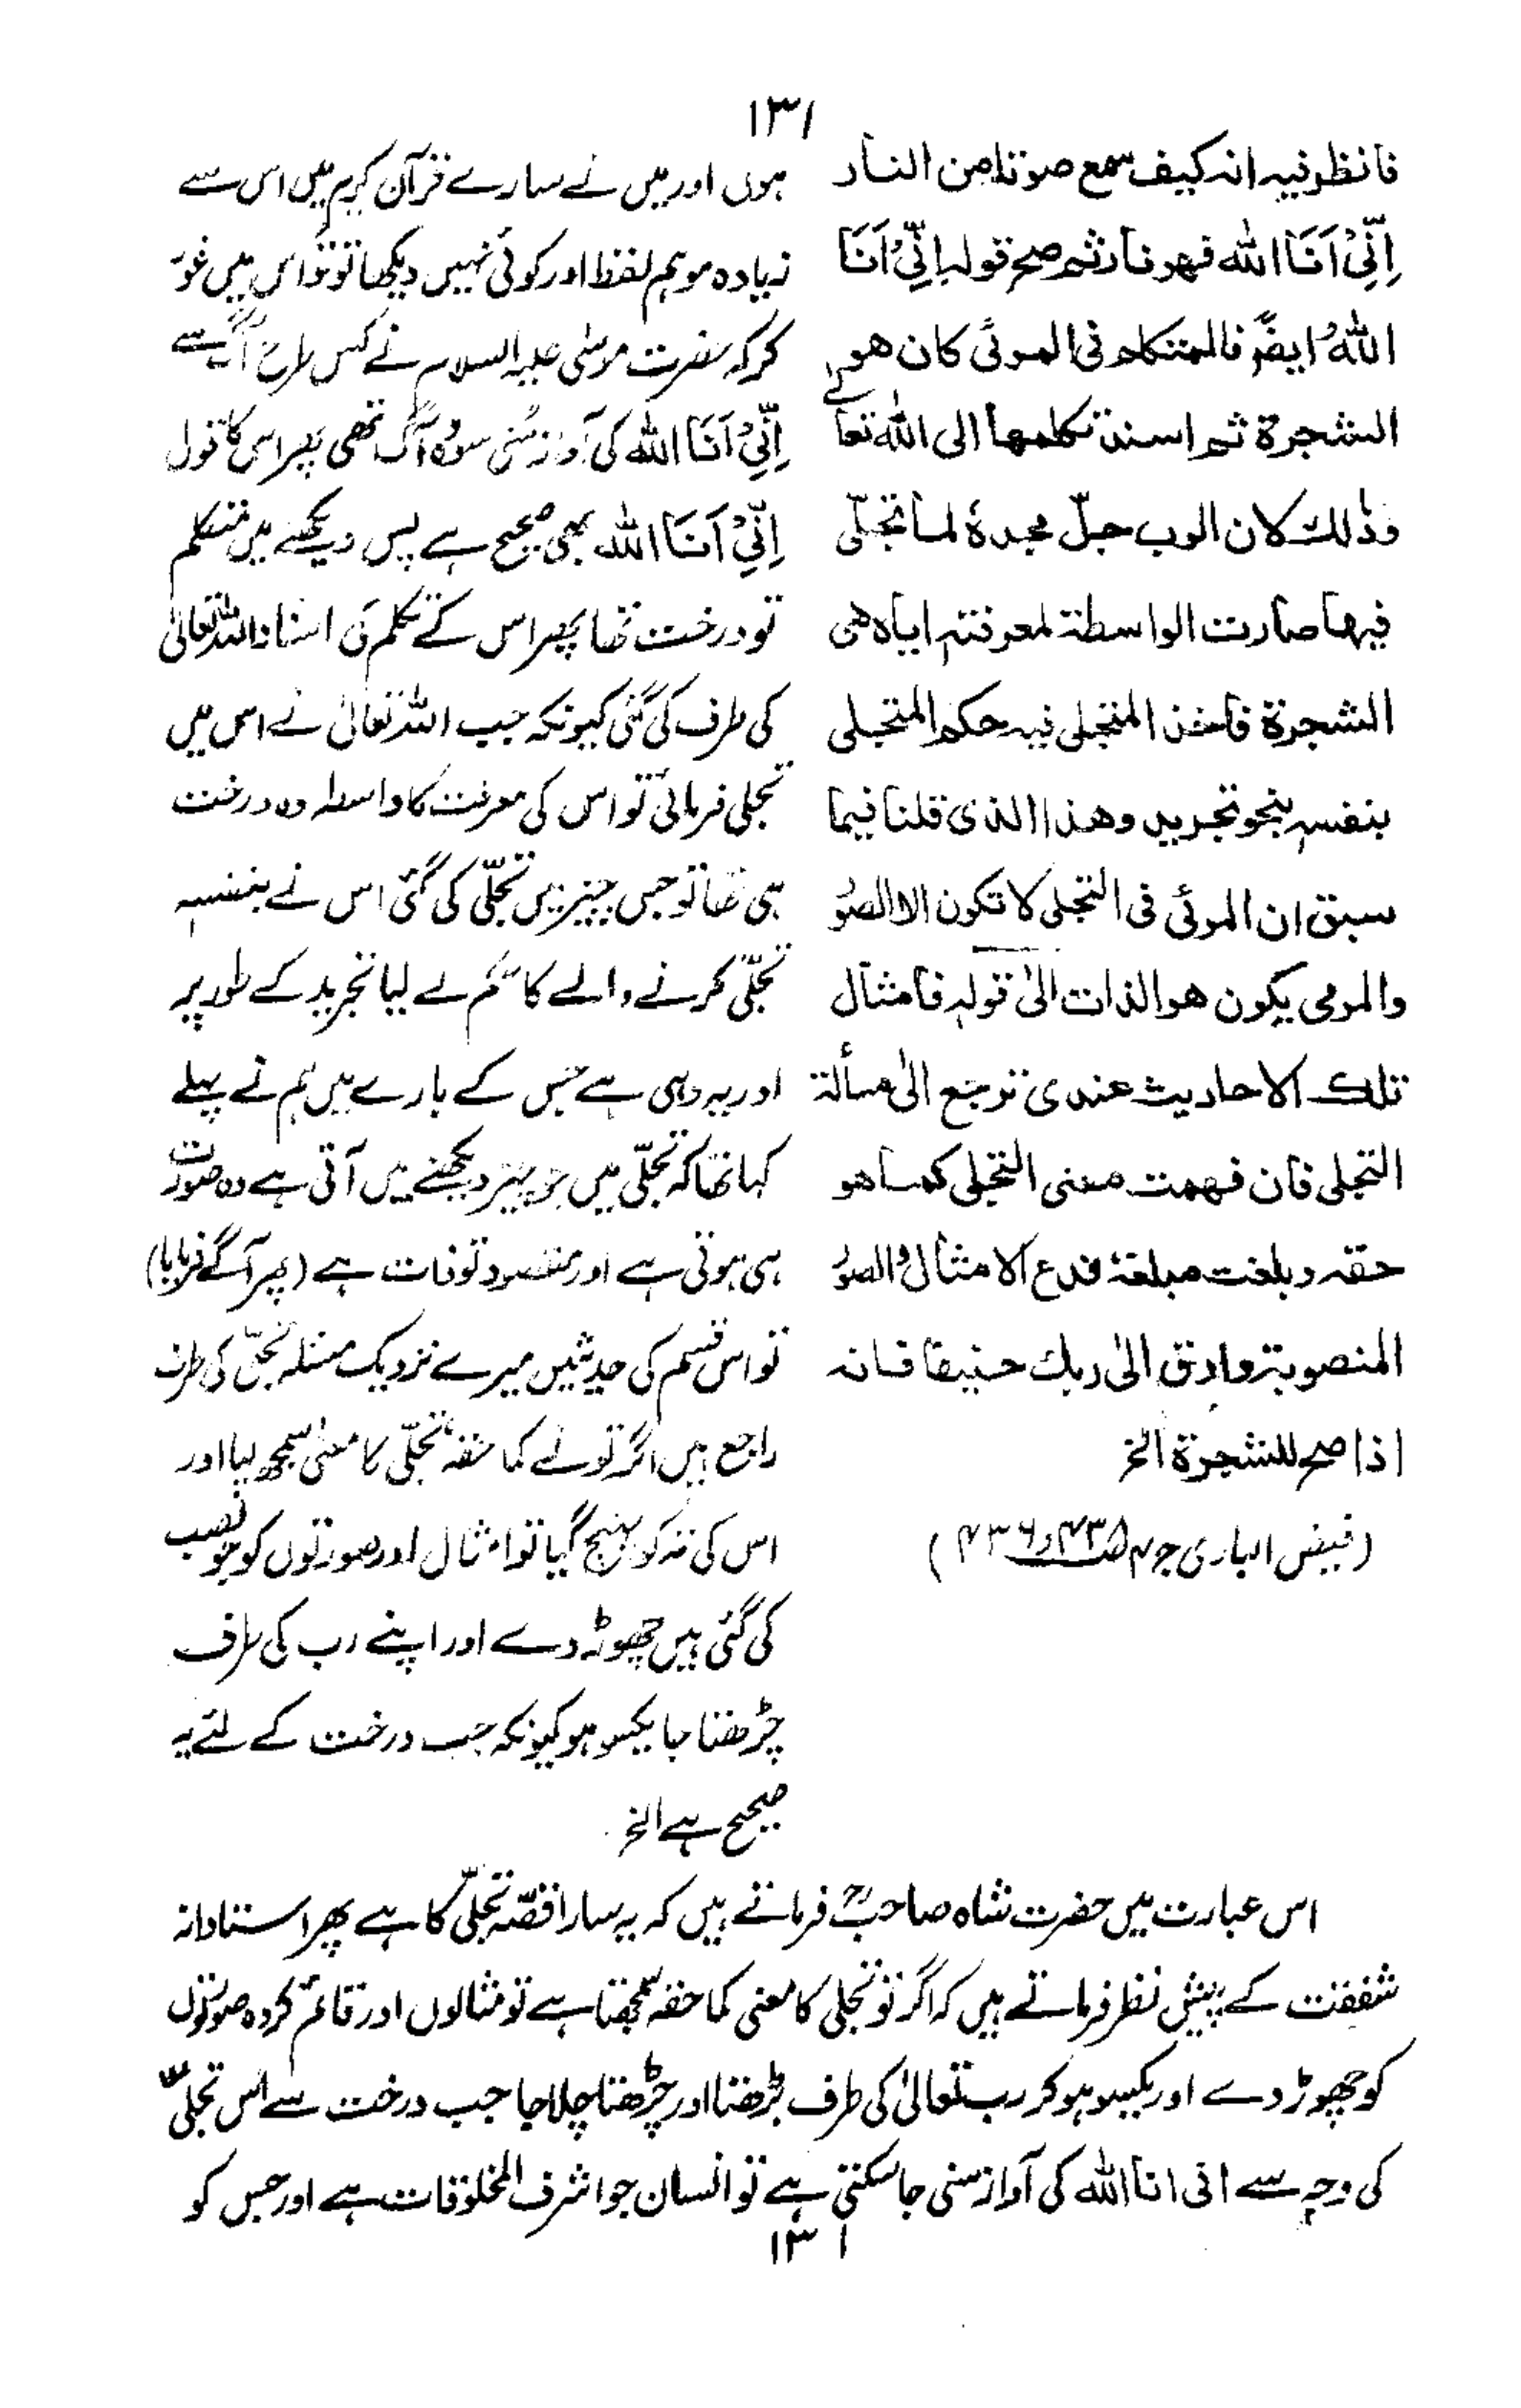 ۱۳۱
فانظر فیہ انہ کیف سمع صوتا من النار
اِنِّیْ اَنَا اللہ فھو نار ثم صح قولہ اِنِّیْ اَنَا
اللہُ ایضًا فالمتکلم فی المرئی کان ھو
الشجرۃ ثم اسند تکلمھا الی اللہ تعالےٰ
وذلک لان الرب جلّ مجدہٗ لما تجلّی
فیھا صارت الواسطۃ لمعرفتہ ایاہ ھی
الشجرۃ فاخذ المتجلی فیہ حکم المتجلی
بنفسہ بنحو تجرید وھذا الذی قلنا فیما
سبق ان المرئی فی التجلی لا تکون الا الصوُر
والمرمی یکون ھو الذات الیٰ قولہ فامثال
تلک الاحادیث عندی ترجع الیٰ مسألۃ
التجلی فان فھمت معنی التجلی کما ھو
حقہ وبلغت مبلغہٗ فدع الامثال والصوُر
المنصوبۃ وارق الیٰ ربک حنیفا فانہ
اذا صح للشجرۃ الخ
(فیض الباری ج۴ ص۴۳۵ و ۴۳۶)
ہوں اور میں نے سارے قرآن کریم میں اس سے
زیادہ موہم لفظ اور کوئی نہیں دیکھا تو تو اس میں غور
کر کہ حضرت موسٰی علیہ السلام نے کس طرح آگ سے
اِنِّیْ اَنَا اللہ کی آواز سُنی سو وہ آگ تھی پھر اس کا قول
اِنِّیْ اَنَا اللہ بھی صحیح ہے پس دیکھنے میں متکلم
تو درخت تھا پھر اس کے تکلم کی اسناد اللہ تعالیٰ
کی طرف کی گئی کیونکہ جب اللہ تعالیٰ نے اس میں
تجلی فرمائی تو اس کی معرفت کا واسطہ وہ درخت
ہی تھا تو جس چیز میں تجلّی کی گئی اس نے بنفسہٖ
تجلّی کرنے والے کا حکم لے لیا تجرید کے طور پر
اور یہ وہی ہے جس کے بارے میں ہم نے پہلے
کہا تھا کہ تجلّی میں جو چیز دیکھنے میں آتی ہے وہ صورت
ہی ہوتی ہے اور مقصود تو ذات ہے (پھر آگے فرمایا)
تو اس قسم کی حدیثیں میرے نزدیک مسئلہ تجلّی کی طرف
راجع ہیں اگر تو نے کما حقہ تجلّی کا معنٰی سمجھ لیا اور
اس کی تہ کو پہنچ گیا تو امثال اور صورتوں کو جو نصب
کی گئی ہیں چھوڑ دے اور اپنے رب کی طرف
چڑھتا جا یکسو ہو کیونکہ جب درخت کے لئے یہ
صحیح ہے الخ
اس عبارت میں حضرت شاہ صاحبؒ فرماتے ہیں کہ یہ سارا قصّہ تجلّی کا ہے پھر استادانہ
شفقت کے پیش نظر فرماتے ہیں کہ اگر تو تجلی کا معنی کما حقہ سمجھتا ہے تو مثالوں اور قائم کردہ صورتوں
کو چھوڑ دے اور یکسو ہو کر رب تعالیٰ کی طرف بڑھتا اور چڑھتا چلا جا جب درخت سے اس تجلّی
کی وجہ سے انی انا اللہ کی آواز سنی جا سکتی ہے تو انسان جو اشرف المخلوقات ہے اور جس کو
۱۳۱